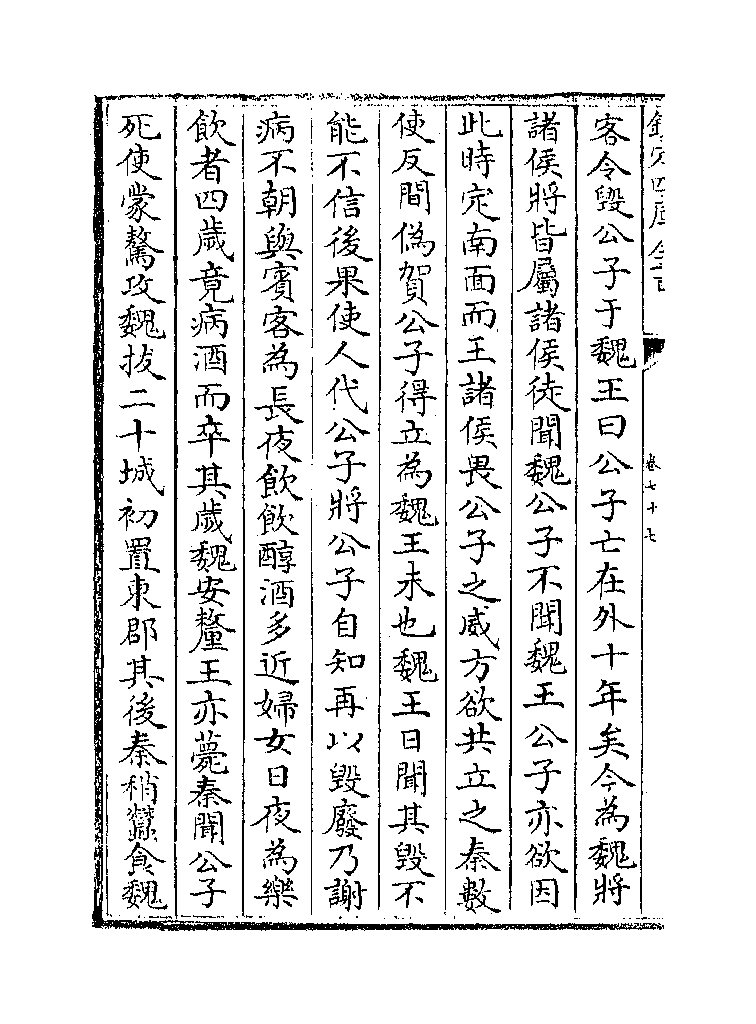 欽定四庫全書
卷七十七
客令毀公子于魏王曰公子亡在外十年矣今為魏將
諸侯將皆屬諸侯徒聞魏公子不聞魏王公子亦欲因
此時定南面而王諸侯畏公子之威方欲共立之秦數
使反間偽賀公子得立為魏王未也魏王日聞其毀不
能不信後果使人代公子將公子自知再以毀廢乃謝
病不朝與賓客為長夜飲飲醇酒多近婦女日夜為樂
飲者四歲竟病酒而卒其歲魏安釐王亦薨秦聞公子
死使蒙驁攻魏拔二十城初置東郡其後秦稍蠶食魏